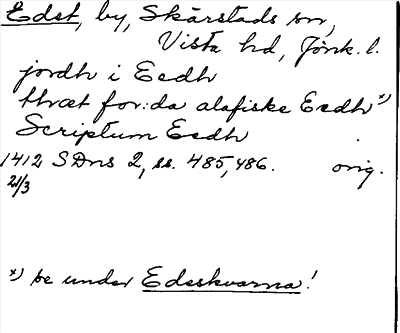 Edst, by, Skärstads sn,
Vista hd, Jönk. l.
jordh i Eedh
thræt for:da alafiske Eedh *)
Scriptum Eedh
1412 SDns 2, ss. 485, 486. orig.
21/3
*) se under Edeskvarna!